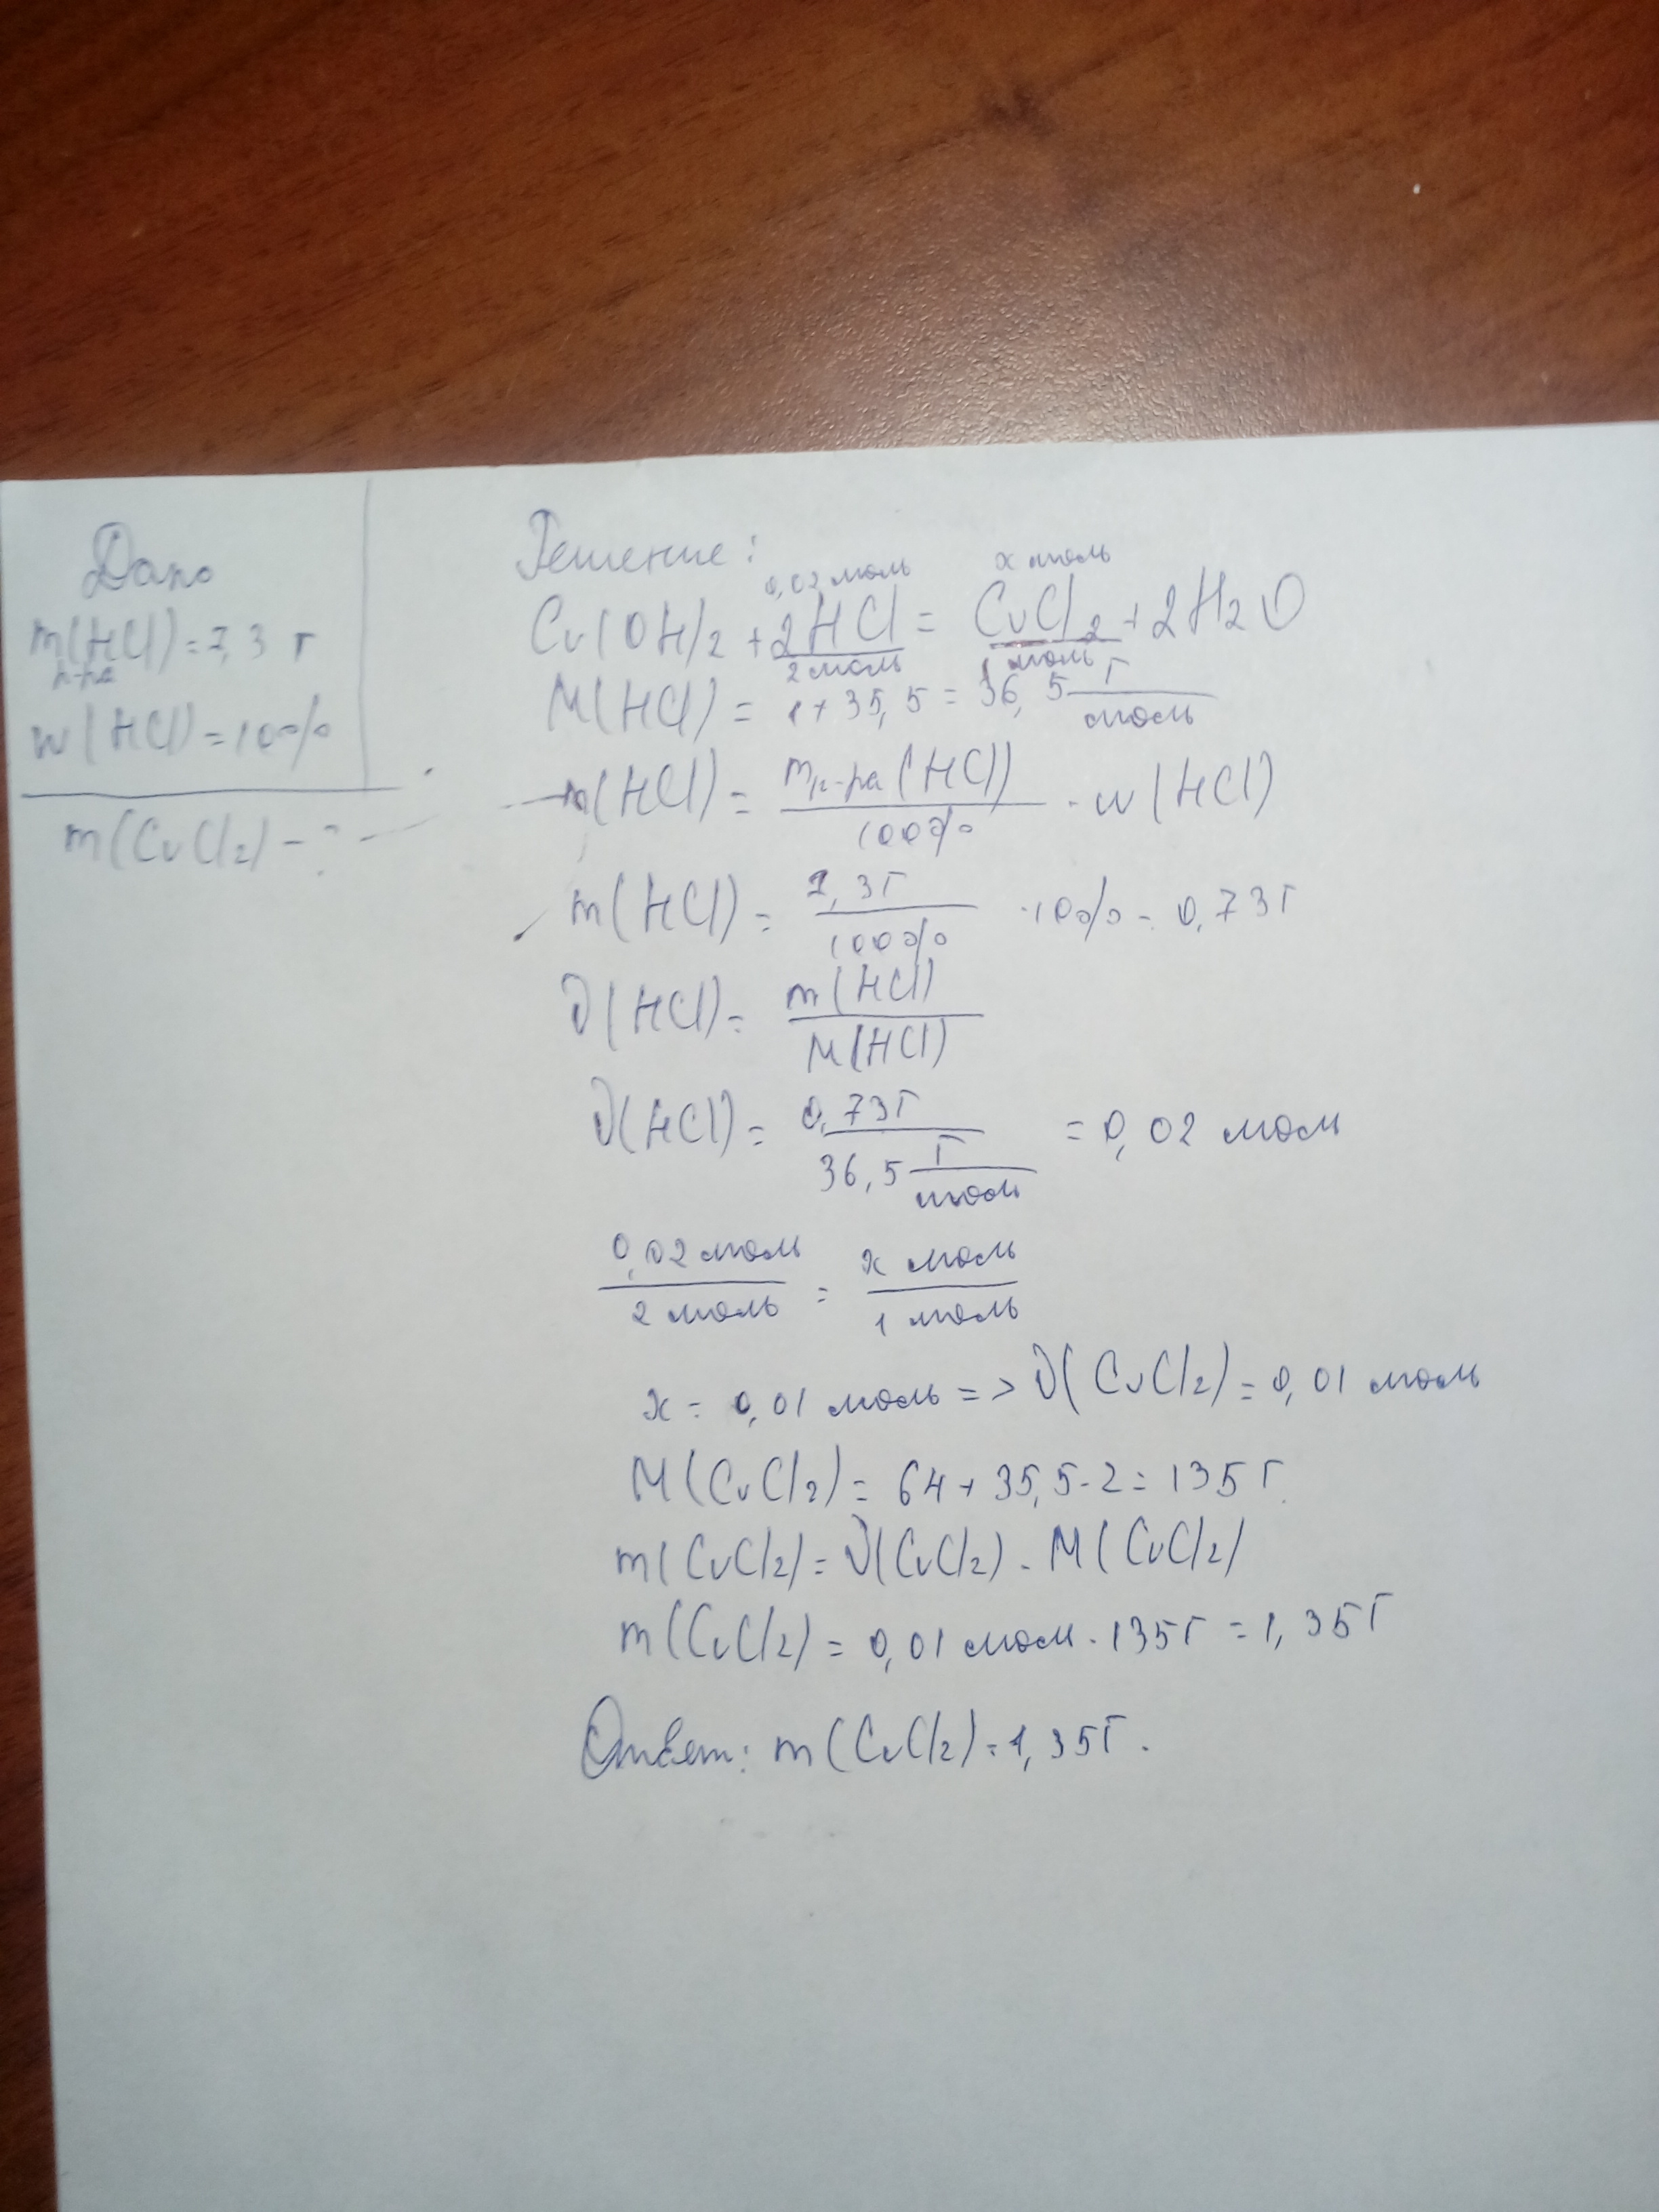 Дано
m(HCl) = 7,3 г
р-ра
w(HCl) = 10%
m(CuCl2) - ?
Решение:
0,02 моль x моль
Cu(OH)2 + 2HCl = CuCl2 + 2H2O
2 моль 1 моль
M(HCl) = 1 + 35,5 = 36,5 г/моль
m(HCl) = mр-ра(HCl)/100% · w(HCl)
m(HCl) = 7,3г/100% · 10% = 0,73г
ν(HCl) = m(HCl)/M(HCl)
ν(HCl) = 0,73г/36,5 г/моль = 0,02 моль
0,02 моль/2 моль = x моль/1 моль
x = 0,01 моль => ν(CuCl2) = 0,01 моль
M(CuCl2) = 64 + 35,5·2 = 135 г.
m(CuCl2) = ν(CuCl2) · M(CuCl2)
m(CuCl2) = 0,01 моль · 135г = 1,35г
Ответ: m(CuCl2) = 1,35г.